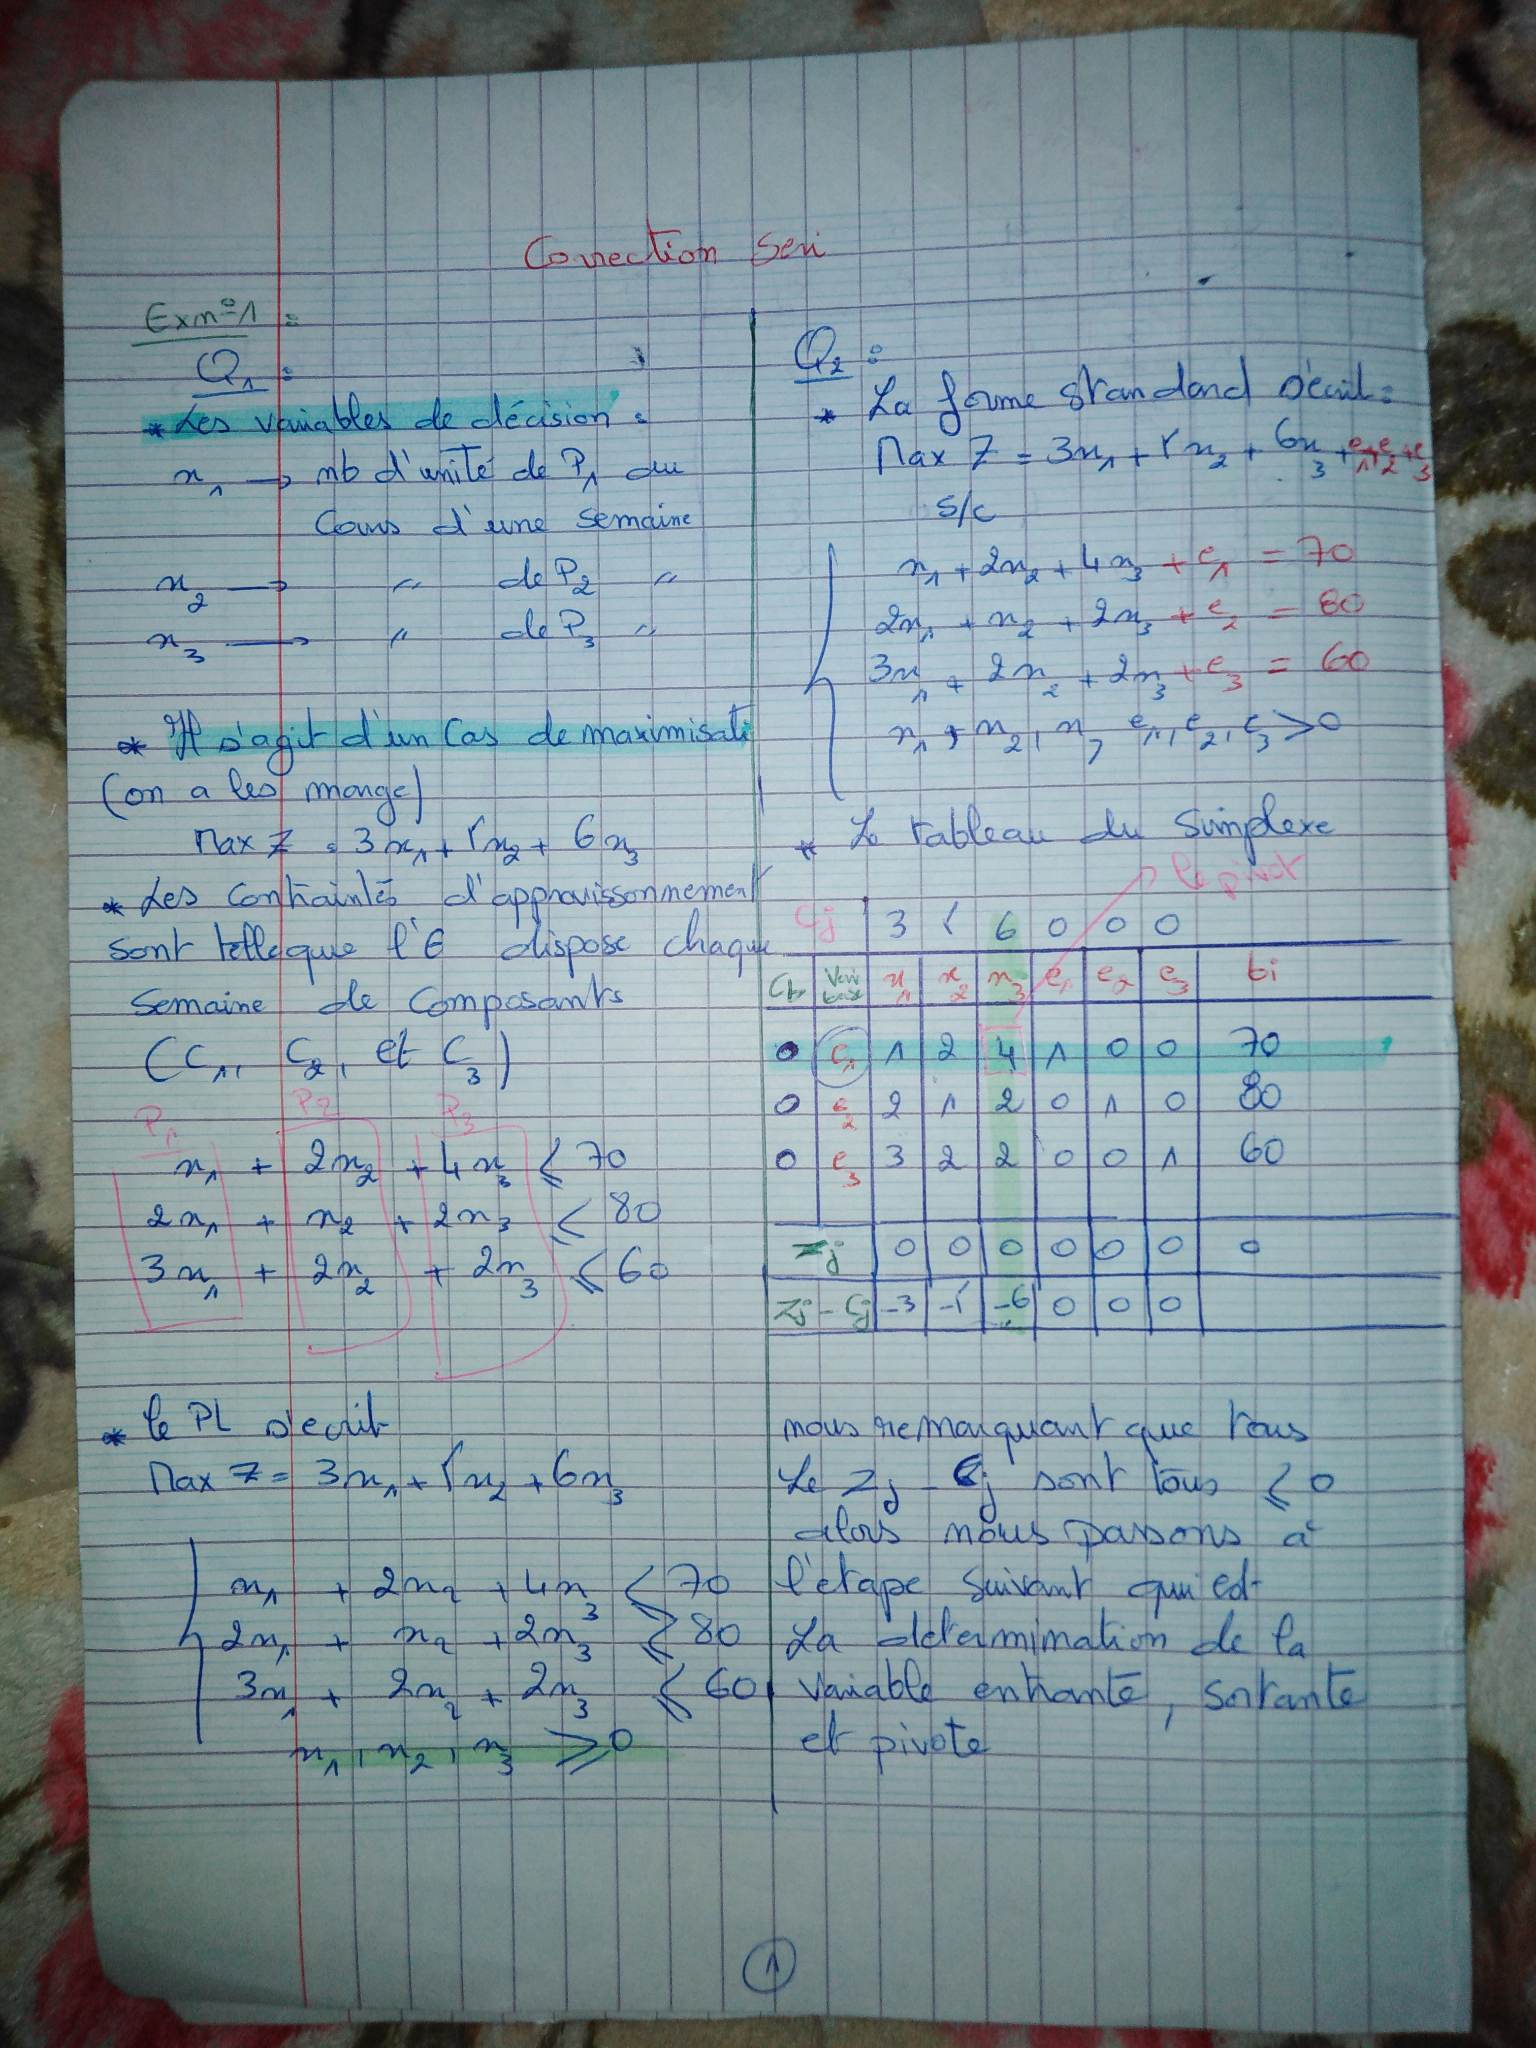 Correction Seri
Ex n°1 :
Q1 :
* Les variables de décision :
x1 → nb d'unité de P1 au
Cours d'une semaine
x2 → " de P2 "
x3 → " de P3 "
* Il s'agit d'un Cas de maximisati
(on a les marge)
Max Z = 3x1 + 5x2 + 6x3
* Les Contraintes d'approvissonnement
sont telleque l'E dispose chaque
Semaine de Composants
(C1, C2, et C3)
P1 P2 P3
x1 + 2x2 + 4x3 ≤ 70
2x1 + x2 + 2x3 ≤ 80
3x1 + 2x2 + 2x3 ≤ 60
* le PL s'ecrit
Max Z = 3x1 + 5x2 + 6x3
x1 + 2x2 + 4x3 ≤ 70
2x1 + x2 + 2x3 ≤ 80
3x1 + 2x2 + 2x3 ≤ 60
x1, x2, x3 ≥ 0
Q2 :
* La forme standard s'ecrit :
Max Z = 3x1 + 5x2 + 6x3 + e1 + e2 + e3
S/C
x1 + 2x2 + 4x3 + e1 = 70
2x1 + x2 + 2x3 + e2 = 80
3x1 + 2x2 + 2x3 + e3 = 60
x1, x2, x3, e1, e2, e3 ≥ 0
* Le tableau du Simplexe
le pivot
Cj 3 5 6 0 0 0
Cb Vari base x1 x2 x3 e1 e2 e3 bi
0 e1 1 2 4 1 0 0 70
0 e2 2 1 2 0 1 0 80
0 e3 3 2 2 0 0 1 60
Zj 0 0 0 0 0 0 0
Zj - Cj -3 -5 -6 0 0 0
nous remarquant que tous
Le Zj - Cj sont tous ≤ 0
alors nous passons à
l'etape suivant qui est
La determination de la
variable entrante, sortante
et pivote
1